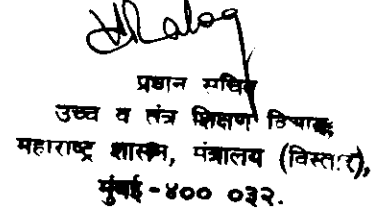 प्रधान सचिव
उच्च व तंत्र शिक्षण विभाग,
महाराष्ट्र शासन, मंत्रालय (विस्तार),
मुंबई - ४०० ०३२.